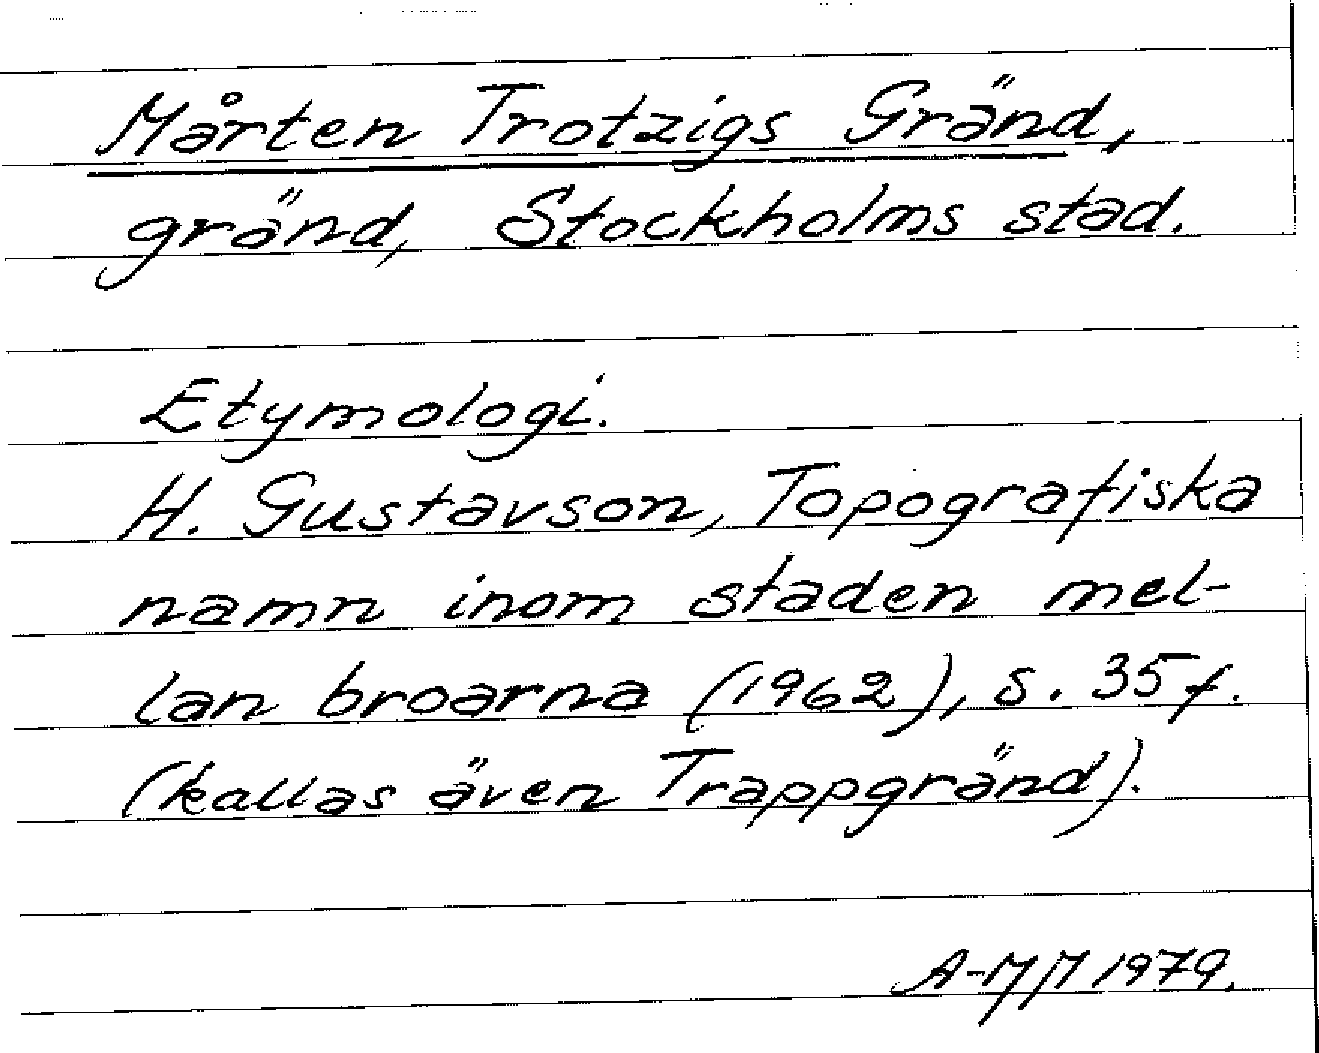 Mårten Trotzigs Gränd,
gränd, Stockholms stad.
Etymologi.
H. Gustavson, Topografiska
namn inom staden mel-
lan broarna (1962), s. 35 f.
(kallas även Trappgränd).
A-MM 1979.